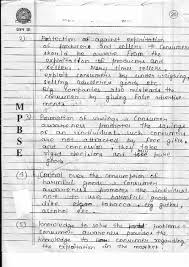 2) Protection of against exploitation
of producers and sellers :- Consumer
should be aware from the
exploitation of producers and
sellers. Many times sellers
exploit consumers by under weighing
selling adulterated goods etc.
Big Companies also misleads the
consumers by giving false advertise-
ments
M P B S E
3) Promotion of savings :- Consumer
awareness promotes the savings
of an individual. Such consumers
not attracted by free gifts
and concession, they take
right decisions and goods
4) Control over the consumption of
harmful goods :- Consumer
awareness promotes the individual
not to use harmful goods
like tobacco, gutkha,
alcohol etc.
5) Knowledge to solve the problems :-
Consumer awareness provides the
knowledge to consumer regarding
the exploitation in the market